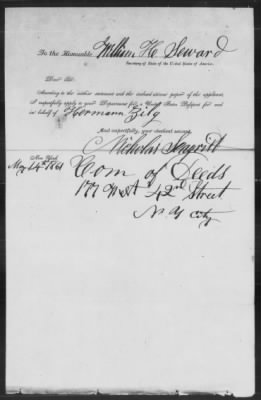 To the Honorable William H. Seward
Secretary of State of the United States of America.
Dear Sir:
According to the within statement and the enclosed citizen papers of the applicant,
I respectfully apply to your Department for a United States Passport for and
in behalf of Hermann
And respectfully, your obedient servant,
Nicholas
New York
May 14th 1861
Com of Deeds
177 West 42nd Street
N. Y City